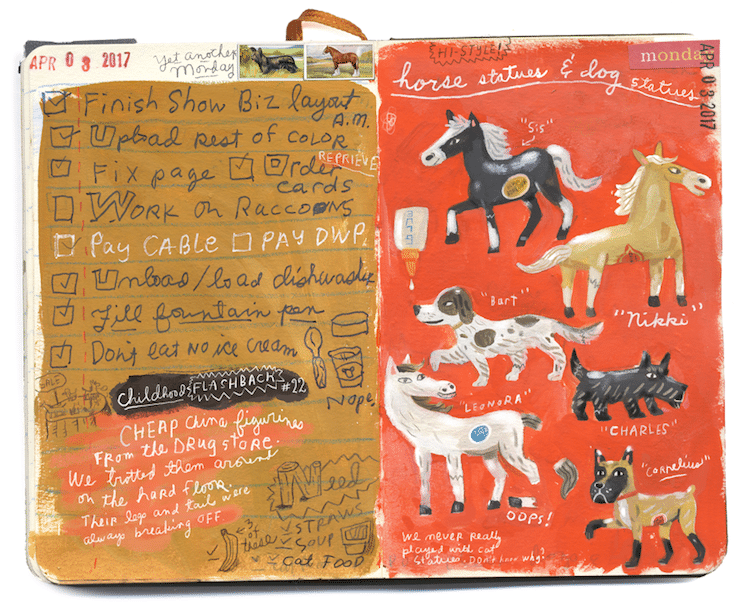 APR 03 2017
yet another
Monday
Finish Show Biz layout
A.M.
Upload rest of color
REPRIEVE
Fix page Order
cards
Work on Raccoons
Pay CABLE PAY DWP.
Unload/load dishwasher
Fill fountain pen
Don't eat no ice cream
Nope!
SALE
Childhood FLASHBACK #22
CHEAP China figurines
FROM the DRugstore.
We trotted them around
on the hard floor.
Their legs and tails were
always breaking off
Need
STRAWS
3 of these
SOUP
Cat FOOD
HI-STYLE!
monday
APR 03 2017
horse statues & dog statues
"Sis"
"Nikki"
"Bart"
"LEONORA"
"CHARLES"
"Cornelius"
OOPS!
We never Really
played with cat
statues. Don't know why?